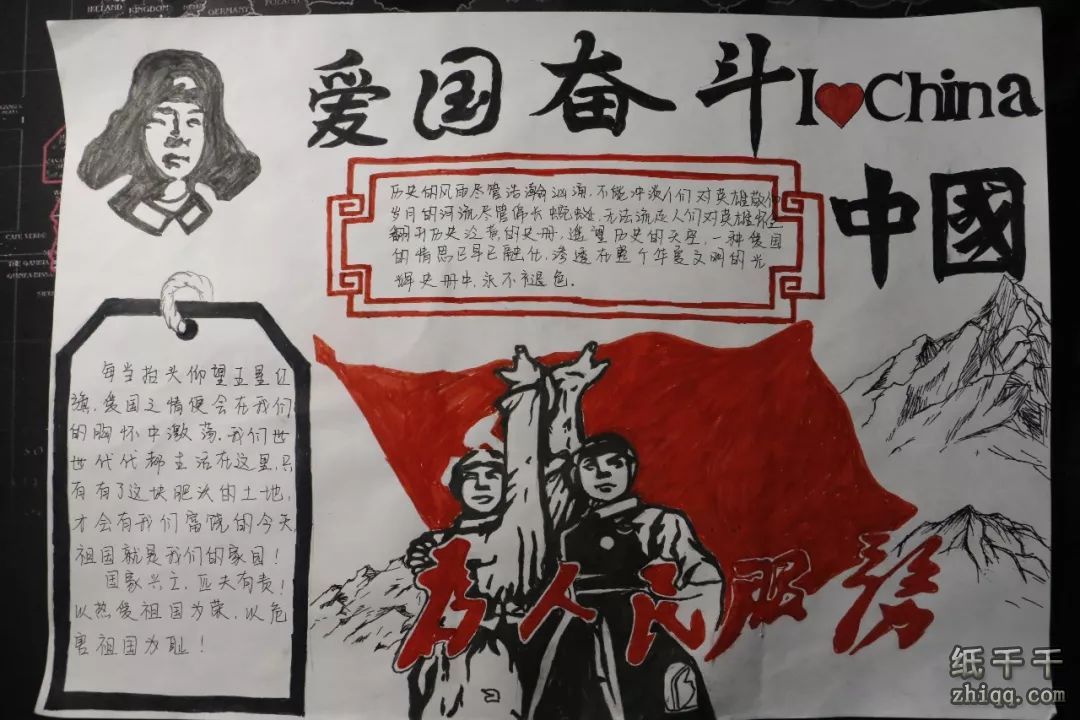 爱国奋斗I❤China
中國
历史的风雨尽管浩瀚汹涌,不能冲淡人们对英雄敬仰
岁月的河流尽管伟长蜿蜒,无法流逝人们对英雄怀念
翻开历史沧黄的史册,遥望历史的天空,一种爱国
的情思已早已融化,渗透在整个华夏文明的光
辉史册中,永不褪色.
每当抬头仰望五星红
旗,爱国之情便会在我们
的胸怀中激荡.我们世
世代代都生活在这里,只
有有了这块肥沃的土地,
才会有我们富饶的今天
祖国就是我们的家园!
国家兴亡,匹夫有责!
以热爱祖国为荣,以危
害祖国为耻!
为人民服務
纸千千
zhiqq.com
IRELAND
KINGDOM
GERMANY
POLAND
CAPE VERDE
THE GAMBIA
GUINEA-BISSAU